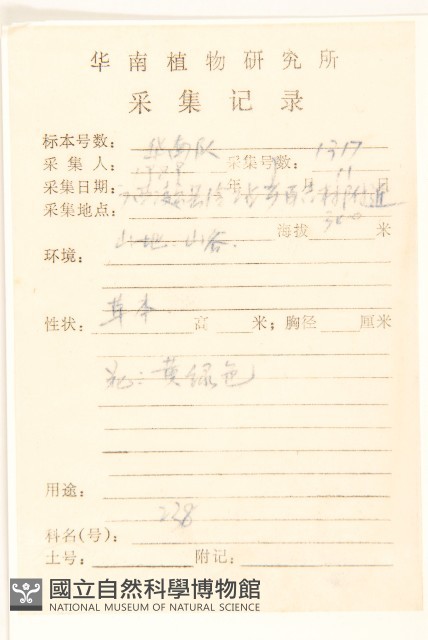 华南植物研究所
采集记录
标本号数:
采集人: 华南队 采集号数: 1317
采集日期: 年 月 11 日
采集地点: 村附近
海拔 350 米
环境: 山地 山谷.
性状: 草本 高 米; 胸径 厘米
花: 黄绿色
用途:
228
科名(号):
土号: 附记:
國立自然科學博物館
NATIONAL MUSEUM OF NATURAL SCIENCE